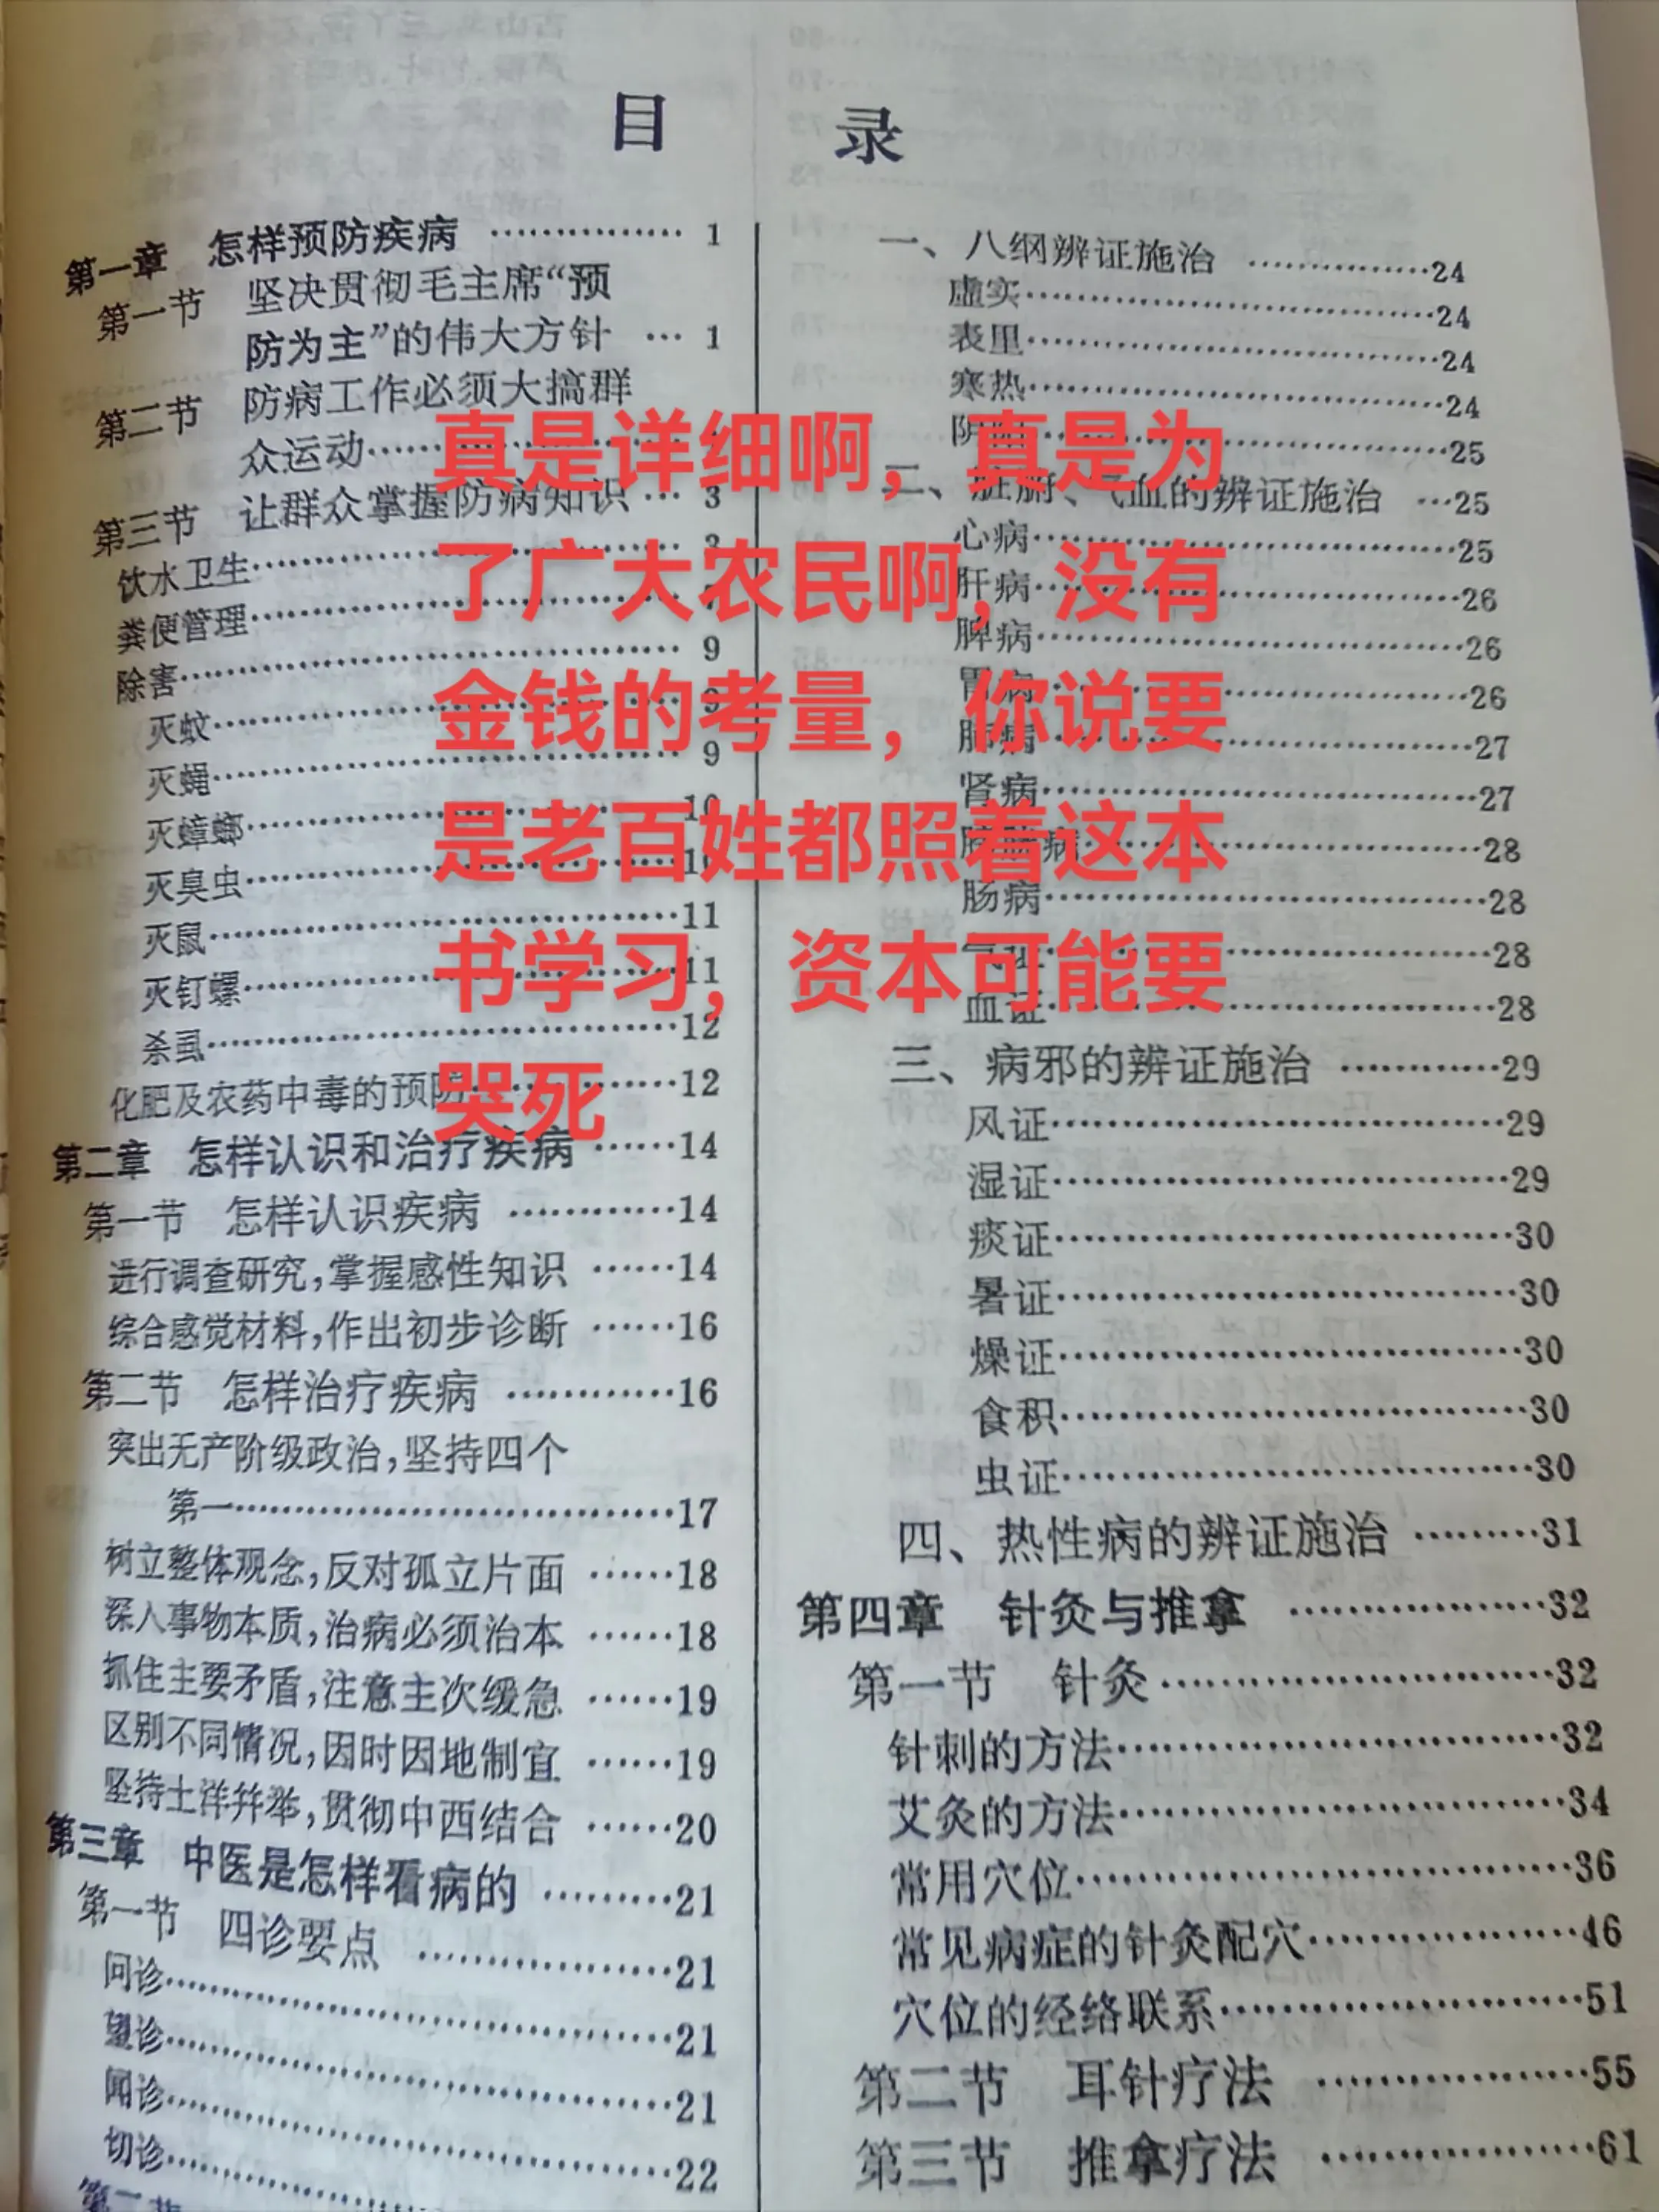 目 录
第一章 怎样预防疾病 …………… 1
第一节 坚决贯彻毛主席“预
防为主”的伟大方针 … 1
第二节 防病工作必须大搞群
众运动……
第三节 让群众掌握防病知识 … 3
饮水卫生…………… 3
粪便管理…………… 7
除害…………… 9
灭蚊…………… 9
灭蝇…………… 9
灭蟑螂…………… 10
灭臭虫…………… 10
灭鼠……………11
灭钉螺……………11
杀虱……………12
化肥及农药中毒的预防……12
第二章 怎样认识和治疗疾病 ……14
第一节 怎样认识疾病 …………14
进行调查研究,掌握感性知识 ……14
综合感觉材料,作出初步诊断 ……16
第二节 怎样治疗疾病 …………16
突出无产阶级政治,坚持四个
第一……………17
树立整体观念,反对孤立片面 ……18
深入事物本质,治病必须治本 ……18
抓住主要矛盾,注意主次缓急 ……19
区别不同情况,因时因地制宜 ……19
坚持土洋并举,贯彻中西结合 ……20
第三章 中医是怎样看病的 ………21
第一节 四诊要点 ……………21
问诊……………21
望诊……………21
闻诊……………21
切诊……………22
第二节
一、八纲辨证施治 ……………24
虚实……………24
表里……………24
寒热……………24
阴阳……………25
二、脏腑、气血的辨证施治 …25
心病……………25
肝病……………26
脾病……………26
胃病……………26
肺病……………27
肾病……………27
病……………28
肠病……………28
气证……………28
血证……………28
三、病邪的辨证施治 …………29
风证……………29
湿证……………29
痰证……………30
暑证……………30
燥证……………30
食积……………30
虫证……………30
四、热性病的辨证施治 ………31
第四章 针灸与推拿 ……………32
第一节 针灸……………32
针刺的方法……………32
艾灸的方法……………34
常用穴位……………36
常见病症的针灸配穴……………46
穴位的经络联系……………51
第二节 耳针疗法 ……………55
第三节 推拿疗法 ……………61
真是详细啊，真是为
了广大农民啊，没有
金钱的考量，你说要
是老百姓都照着这本
书学习，资本可能要
哭死